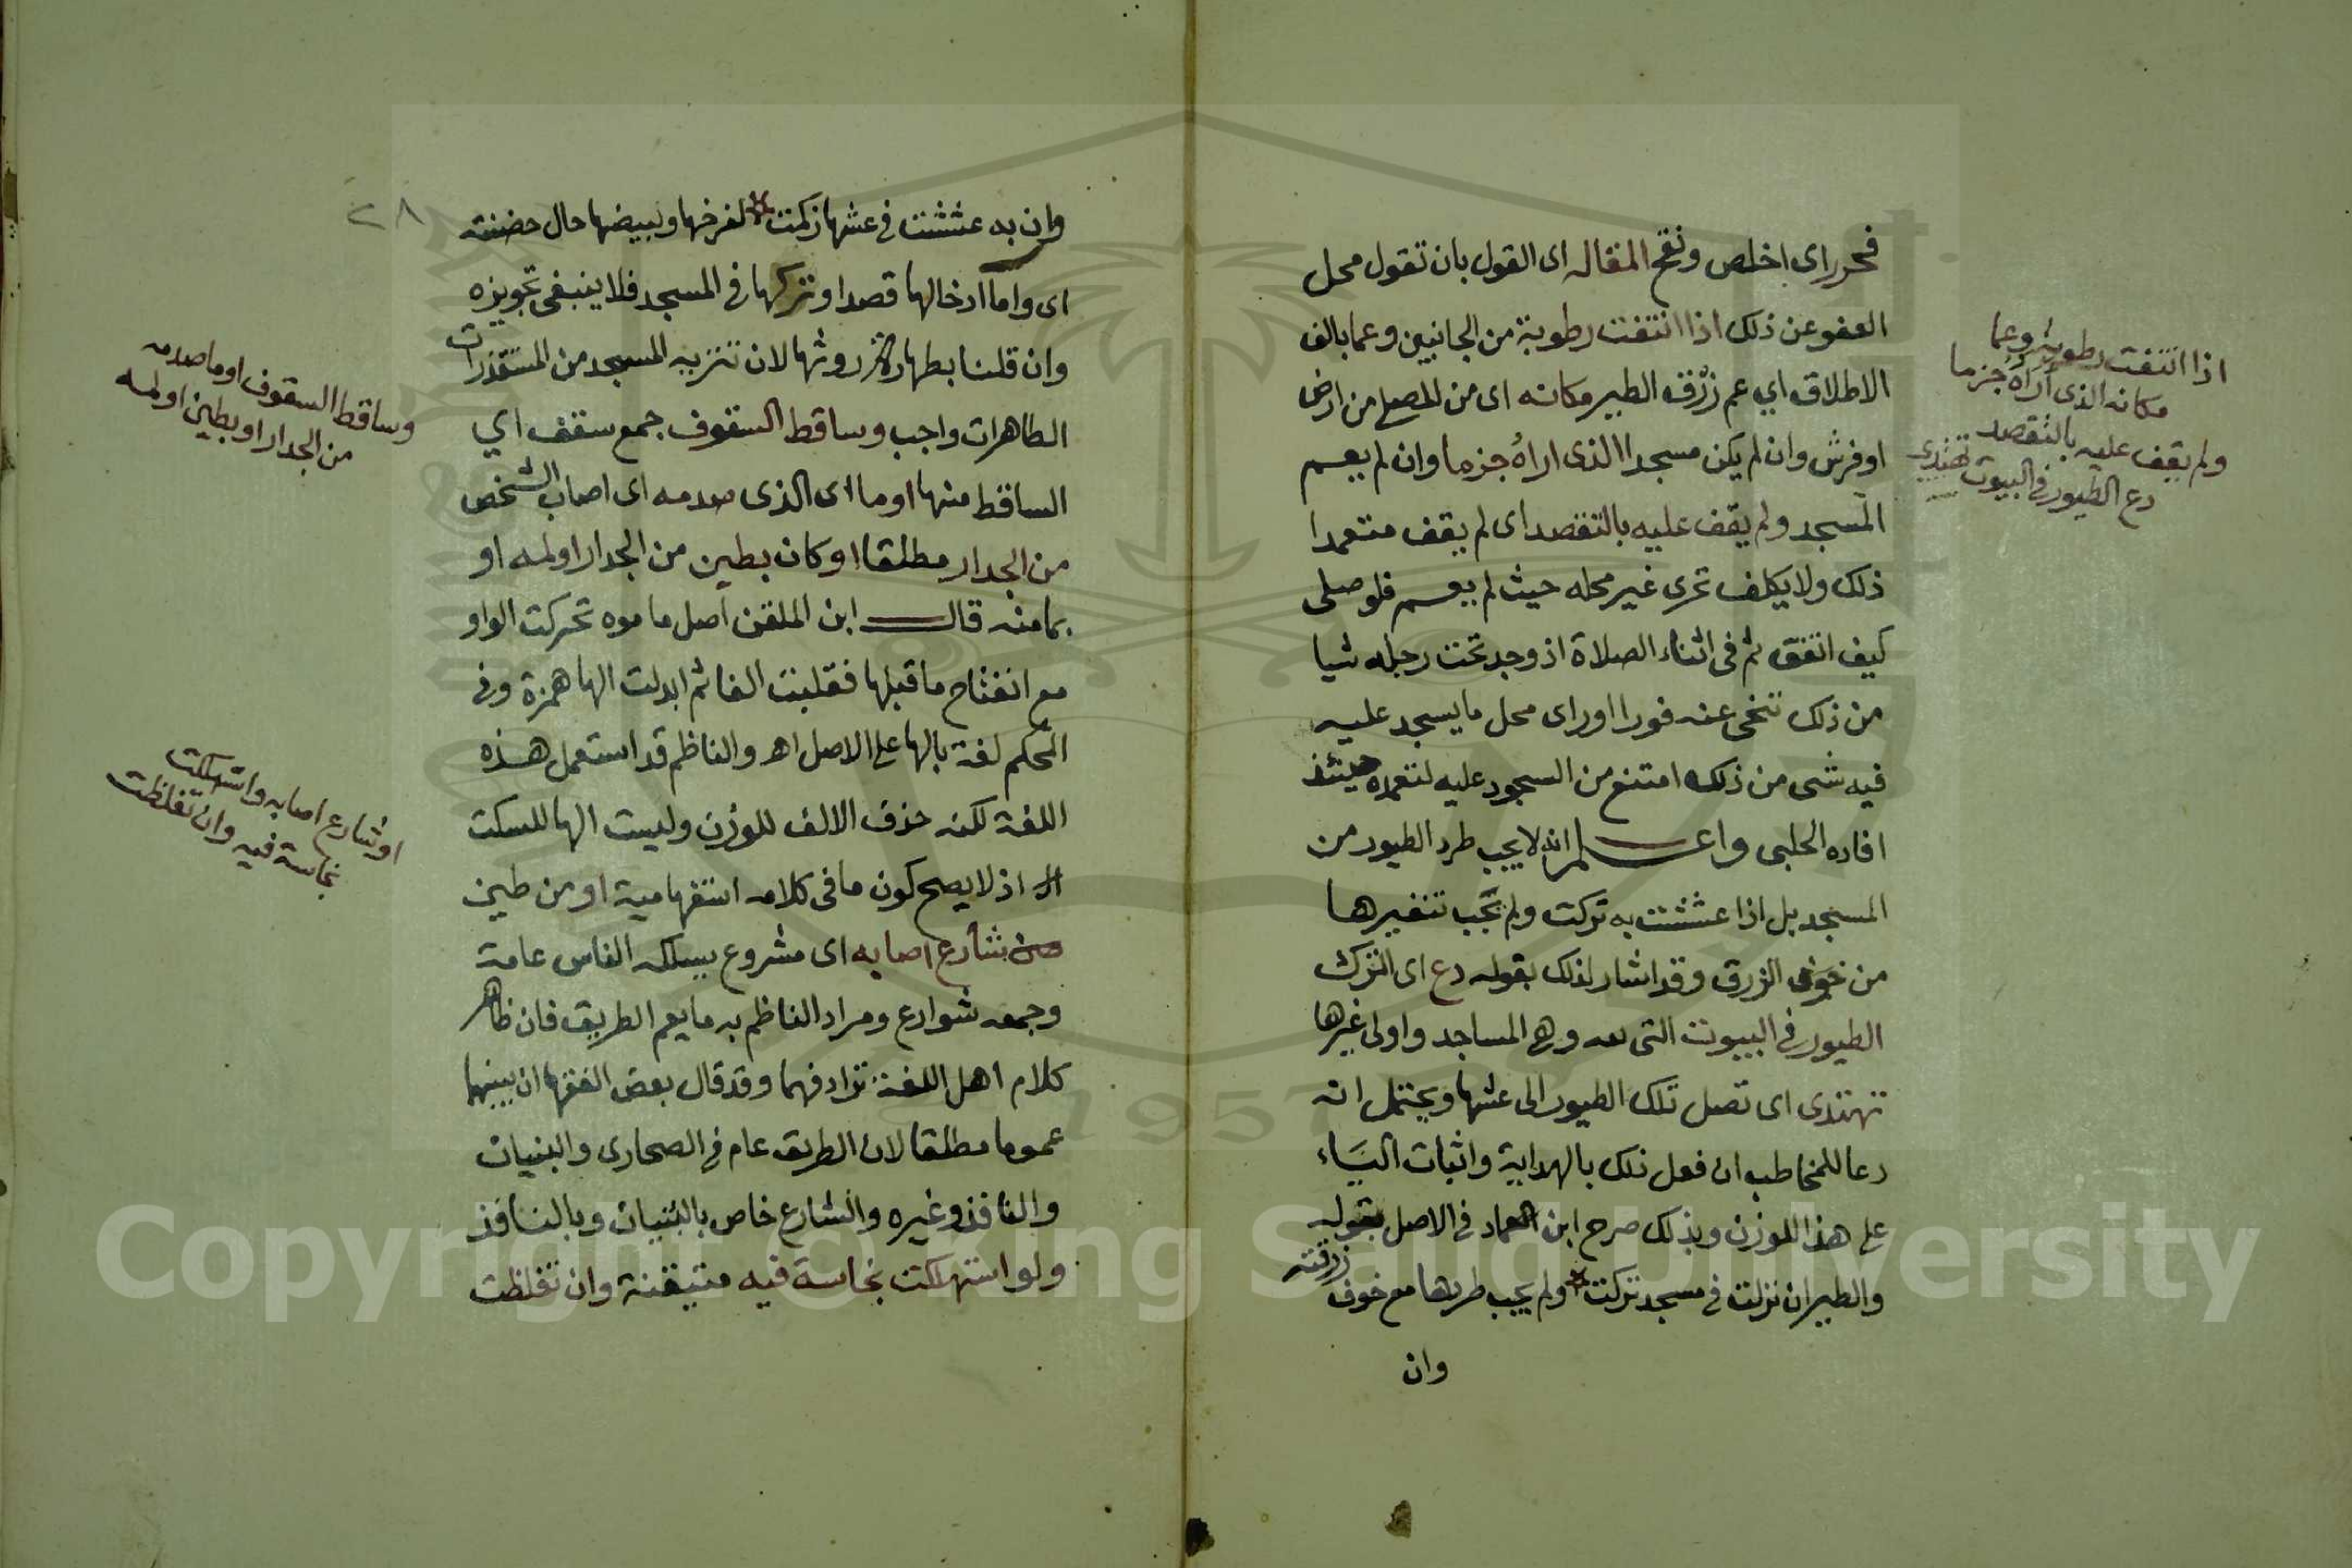 فحرر اى اخلص ونقح المقاله اى القول بان تقول محل
العفو عن ذلك اذا انتفت رطوبة من الجانبين وعما بالف
الاطلاق اي عم زرق الطير مكانه اى من المصلى من ارض
او فرش وان لم يكن مسجدا الذى اراه جزما وان لم يعم
المسجد ولم يقف عليه بالتقصد اى لم يقف متعمدا
ذلك ولا يكلف تحرى غير محله حيث لم يعم فلو صلى
كيف اتفق ثم فى اثناء الصلاة اذ وجد تحت رجله شيا
من ذلك تنحى عنه فورا اوراى محل ما يسجد عليه
فيه شى من ذلك امتنع من السجود عليه لتعمده حينئذ
افاده الحلبى واعلم انه لا يجب طرد الطيور من
المسجد بل اذا عششت به تركت ولم يجب تنفيرها
من خوف الزرق وقد اشار لذلك بقوله دع اى اترك
الطيور فى البيوت التى لله وهى المساجد واولى غيرها
تهتدى اى تصل تلك الطيور الى عشها ويحتمل انه
دعا للمخاطب ان فعل ذلك بالهداية واثبات الياء
على هذا للوزن وبذلك صرح ابن العماد فى الاصل بقوله
والطير ان نزلت فى مسجد تركت * ولم يجب طردها مع خوف زرقته
وان
اذا انتفت رطوبة وعما
مكانه الذى أراه جزما
ولم يقف عليه بالتقصد
دع الطيور فى البيوت تهتدى
٢٨
وان به عششت فى عشها زكمت * لفرخها ولبيضها حال حضنته
اى واما ادخالها قصدا وتركها فى المسجد فلا ينبغى تجويزه
وان قلنا بطهارة روثها لان تنزيه المسجد من المستقذرات
الطاهرات واجب وساقط السقوف جمع سقف اي
الساقط منها او ما اى الذى صدمه اى اصاب الشخص
من الجدار مطلقا او كان بطين من الجدار اولمه او
بمامنه قال ابن الملقن أصل ما موه تحركت الواو
مع انفتاح ما قبلها فقلبت الفا ثم ابدلت الها همزة وفى
المحكم لغة بالها على الاصل اه والناظم قد استعمل هذه
اللغة لكنه حذف الالف للوزن وليست الها للسكت
اذ لا يصح كون ما فى كلامه استفهامية او من طين
شارع اصابه اى مشروع يسلكه الناس عامة
وجمعه شوارع ومراد الناظم به ما يعم الطريق فان ظاهر
كلام اهل اللغة ترادفهما وقد قال بعض الفقها ان بينهما
عموما مطلقا لان الطريق عام فى الصحارى والبنيان
والنافذ وغيره والشارع خاص بالبنيان وبالنافذ
ولو استهلكت نجاسة فيه متيقنة وان تغلظت
وساقط السقوف او ما صدمه
من الجدار او بطين اولمه
او شارع اصابه واستهلكت
نجاسة فيه وان تغلظت
1957
Copyright © King Saud University